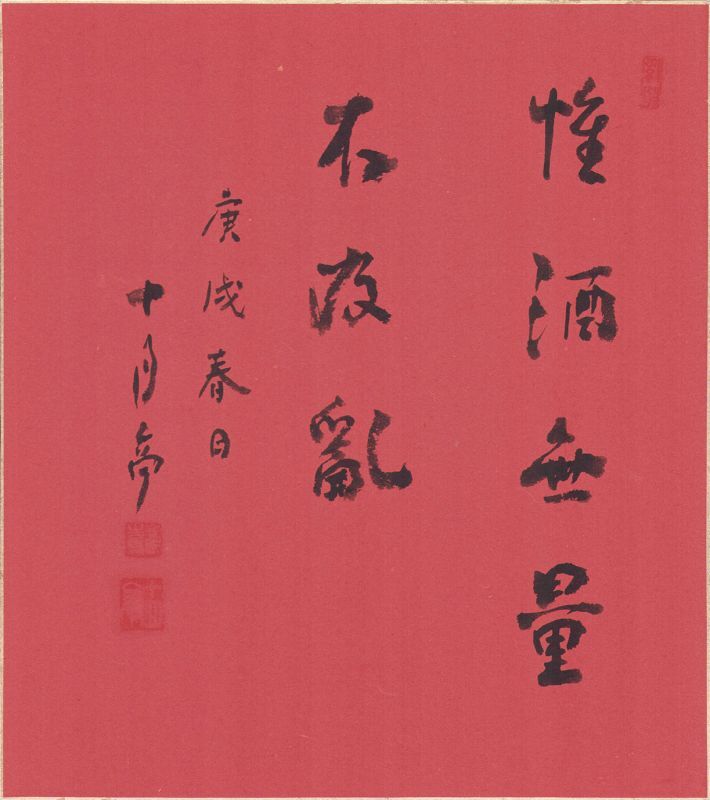 惟酒無量
不及亂
庚戌春日
十夢